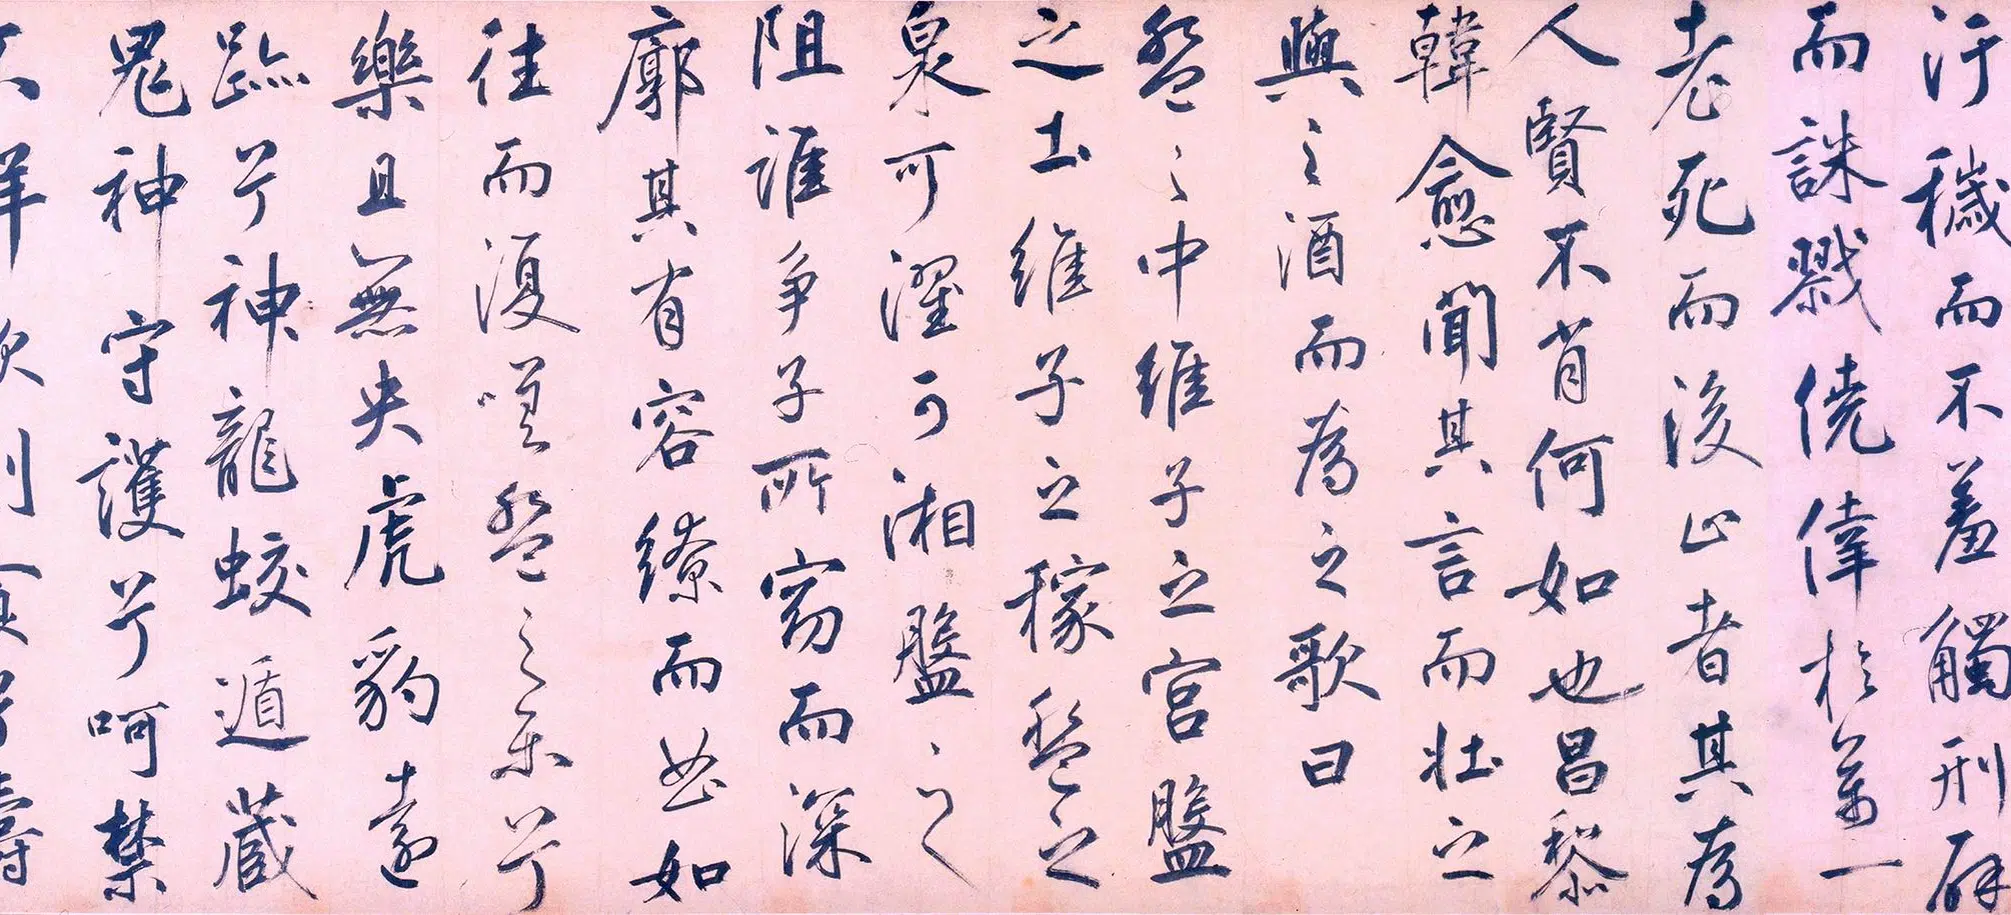 汙穢而不羞觸刑辟
而誅戮僥倖於萬一
老死而後止者其為
人賢不肖何如也昌黎
韓愈聞其言而壯之
與之酒而為之歌曰
盤之中維子之宮盤
之土維子之稼盤之
泉可濯可湘盤之
阻誰爭子所窈而深
廓其有容繚而曲如
往而復嗟盤之樂兮
樂且無央虎豹遠
跡兮神龍蛟遁藏
鬼神守護兮呵禁
不祥飲則食兮壽